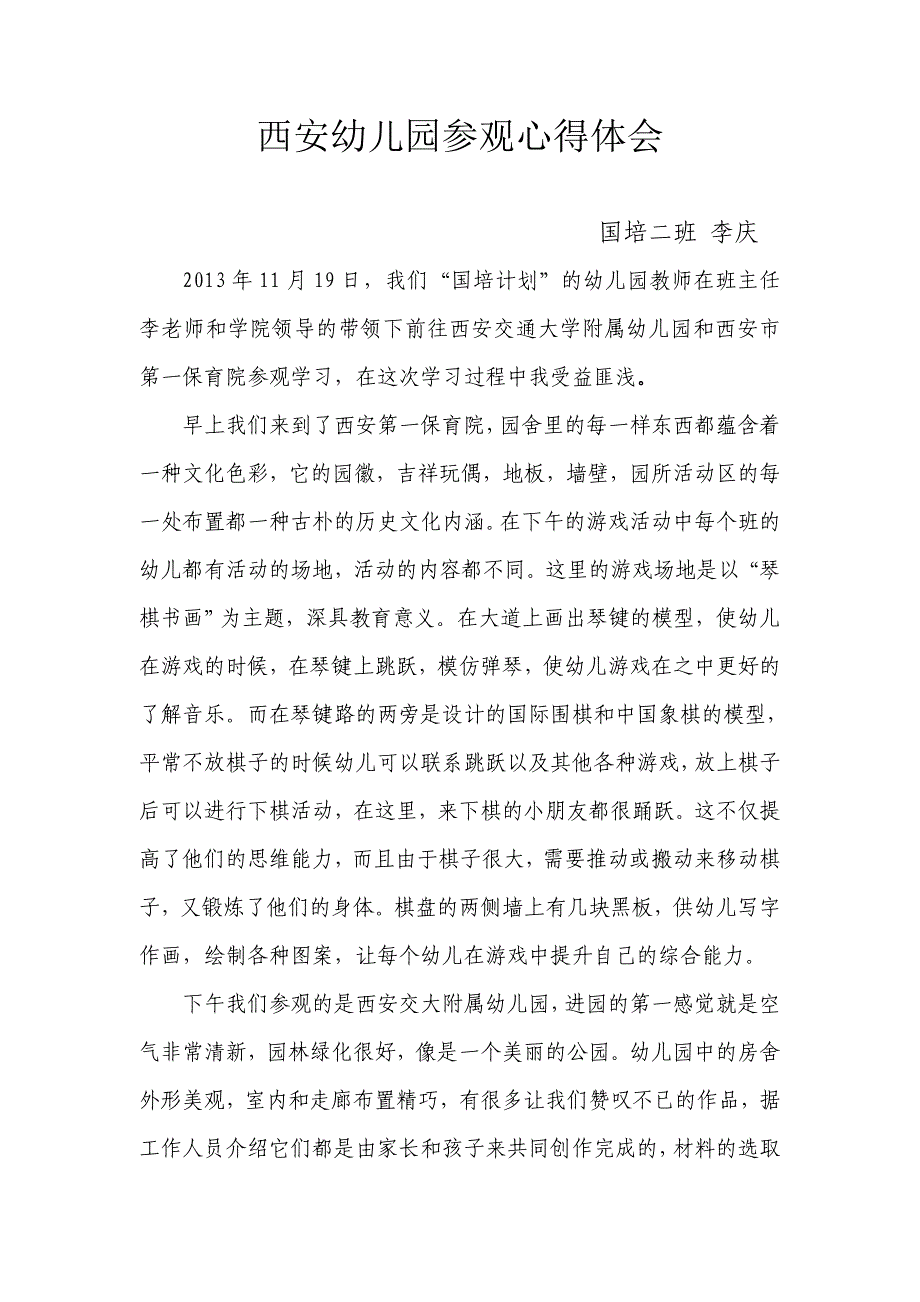 西安幼儿园参观心得体会
国培二班 李庆
2013 年 11 月 19 日，我们“国培计划”的幼儿园教师在班主任
李老师和学院领导的带领下前往西安交通大学附属幼儿园和西安市
第一保育院参观学习，在这次学习过程中我受益匪浅。
早上我们来到了西安第一保育院，园舍里的每一样东西都蕴含着
一种文化色彩，它的园徽，吉祥玩偶，地板，墙壁，园所活动区的每
一处布置都一种古朴的历史文化内涵。在下午的游戏活动中每个班的
幼儿都有活动的场地，活动的内容都不同。这里的游戏场地是以“琴
棋书画”为主题，深具教育意义。在大道上画出琴键的模型，使幼儿
在游戏的时候，在琴键上跳跃，模仿弹琴，使幼儿游戏在之中更好的
了解音乐。而在琴键路的两旁是设计的国际围棋和中国象棋的模型，
平常不放棋子的时候幼儿可以联系跳跃以及其他各种游戏，放上棋子
后可以进行下棋活动，在这里，来下棋的小朋友都很踊跃。这不仅提
高了他们的思维能力，而且由于棋子很大，需要推动或搬动来移动棋
子，又锻炼了他们的身体。棋盘的两侧墙上有几块黑板，供幼儿写字
作画，绘制各种图案，让每个幼儿在游戏中提升自己的综合能力。
下午我们参观的是西安交大附属幼儿园，进园的第一感觉就是空
气非常清新，园林绿化很好，像是一个美丽的公园。幼儿园中的房舍
外形美观，室内和走廊布置精巧，有很多让我们赞叹不已的作品，据
工作人员介绍它们都是由家长和孩子来共同创作完成的，材料的选取